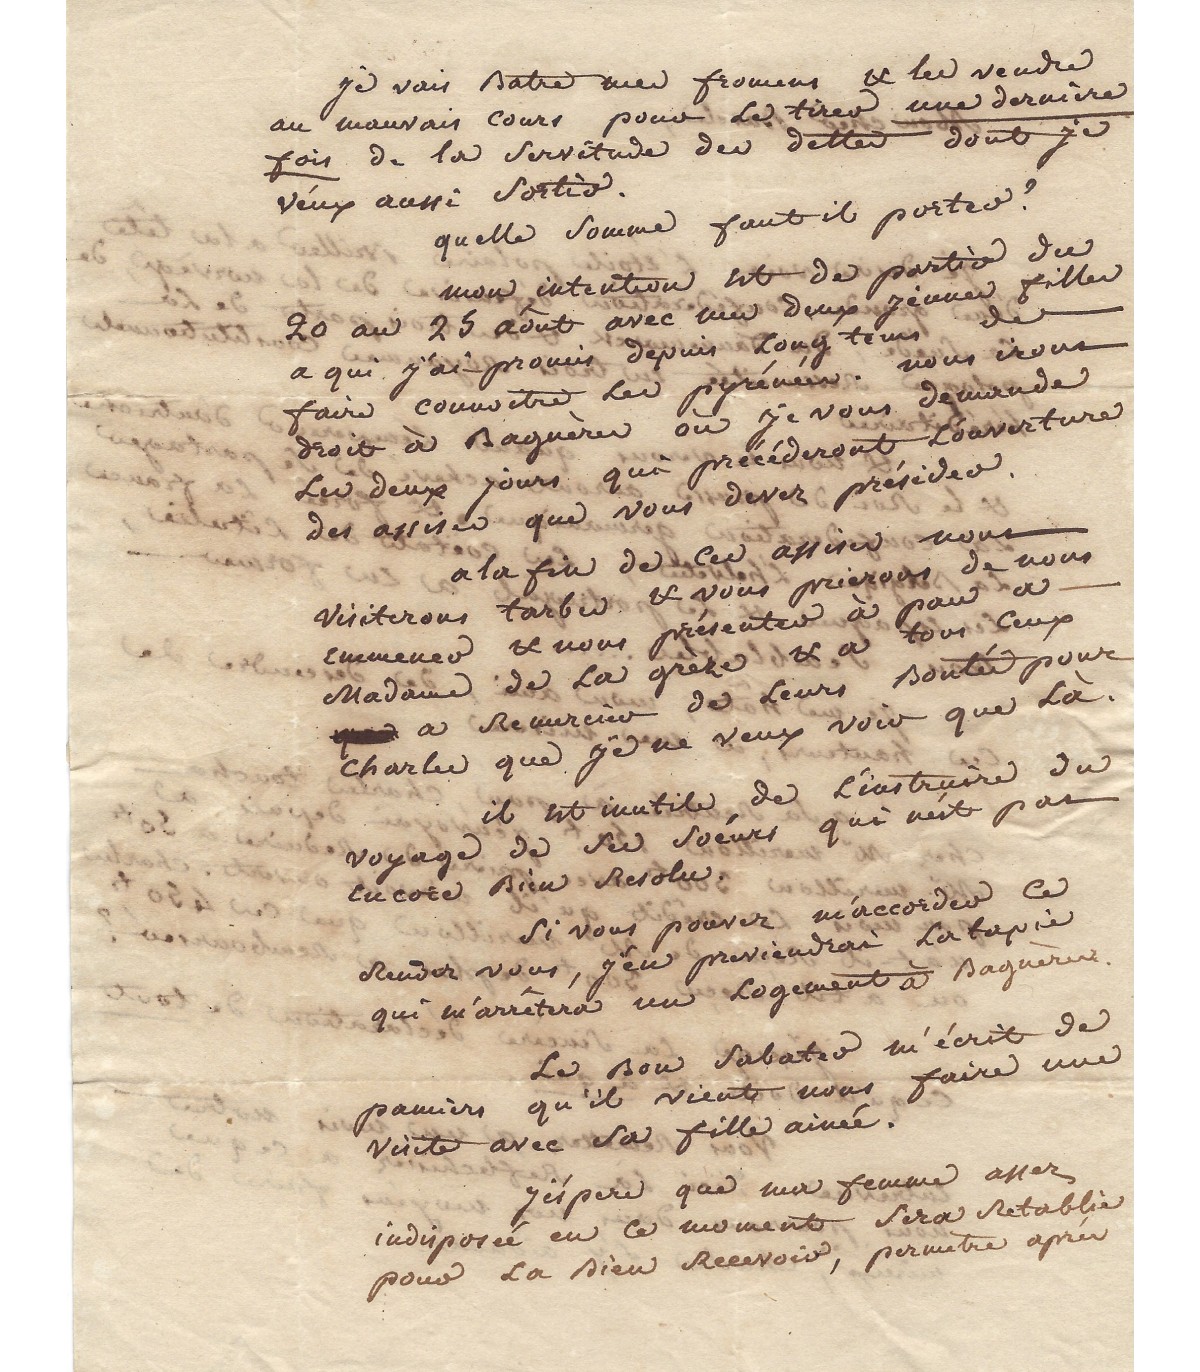 je vais Batre mes fromens & les vendre
au mauvais cours pour Le tirer une dernière
fois de la servitude des dettes dont je
véux aussi sortir.
quelle somme faut il porter?
mon intention est de partir du
20 au 25 aôut avec mes deux jeunes filles
a qui j'ai promis depuis Longtems de
faire connoitre Les pyrénées. nous irons
droit à Bagnères où je vous demande
Les deux jours qui précéderont L'ouverture
des assises que vous devez présider.
a la fin de ces assises nous
visiterons tarbes & vous prierons de nous
emmener & nous présenter à pau a
Madame de La grèze & a tous ceux
a Remercier de Leurs Bontés pour
Charles que je ne veux voir que Là.
il est inutile de L'instruire du
voyage de ses soeurs qui n'est pas
encore Bien Resolu.
Si vous pouvez m'accorder ce
Rendez vous, j'en previendrai Latapie
qui m'arrêtera un Logement à Bagnères.
Le Bon Sabater m'écrit de
pamiers qu'il vient nous faire une
visite avec sa fille ainée.
j'éspere que ma femme assez
indisposée en ce moment sera Retablie
pour La Bien Recevoir, permetre après